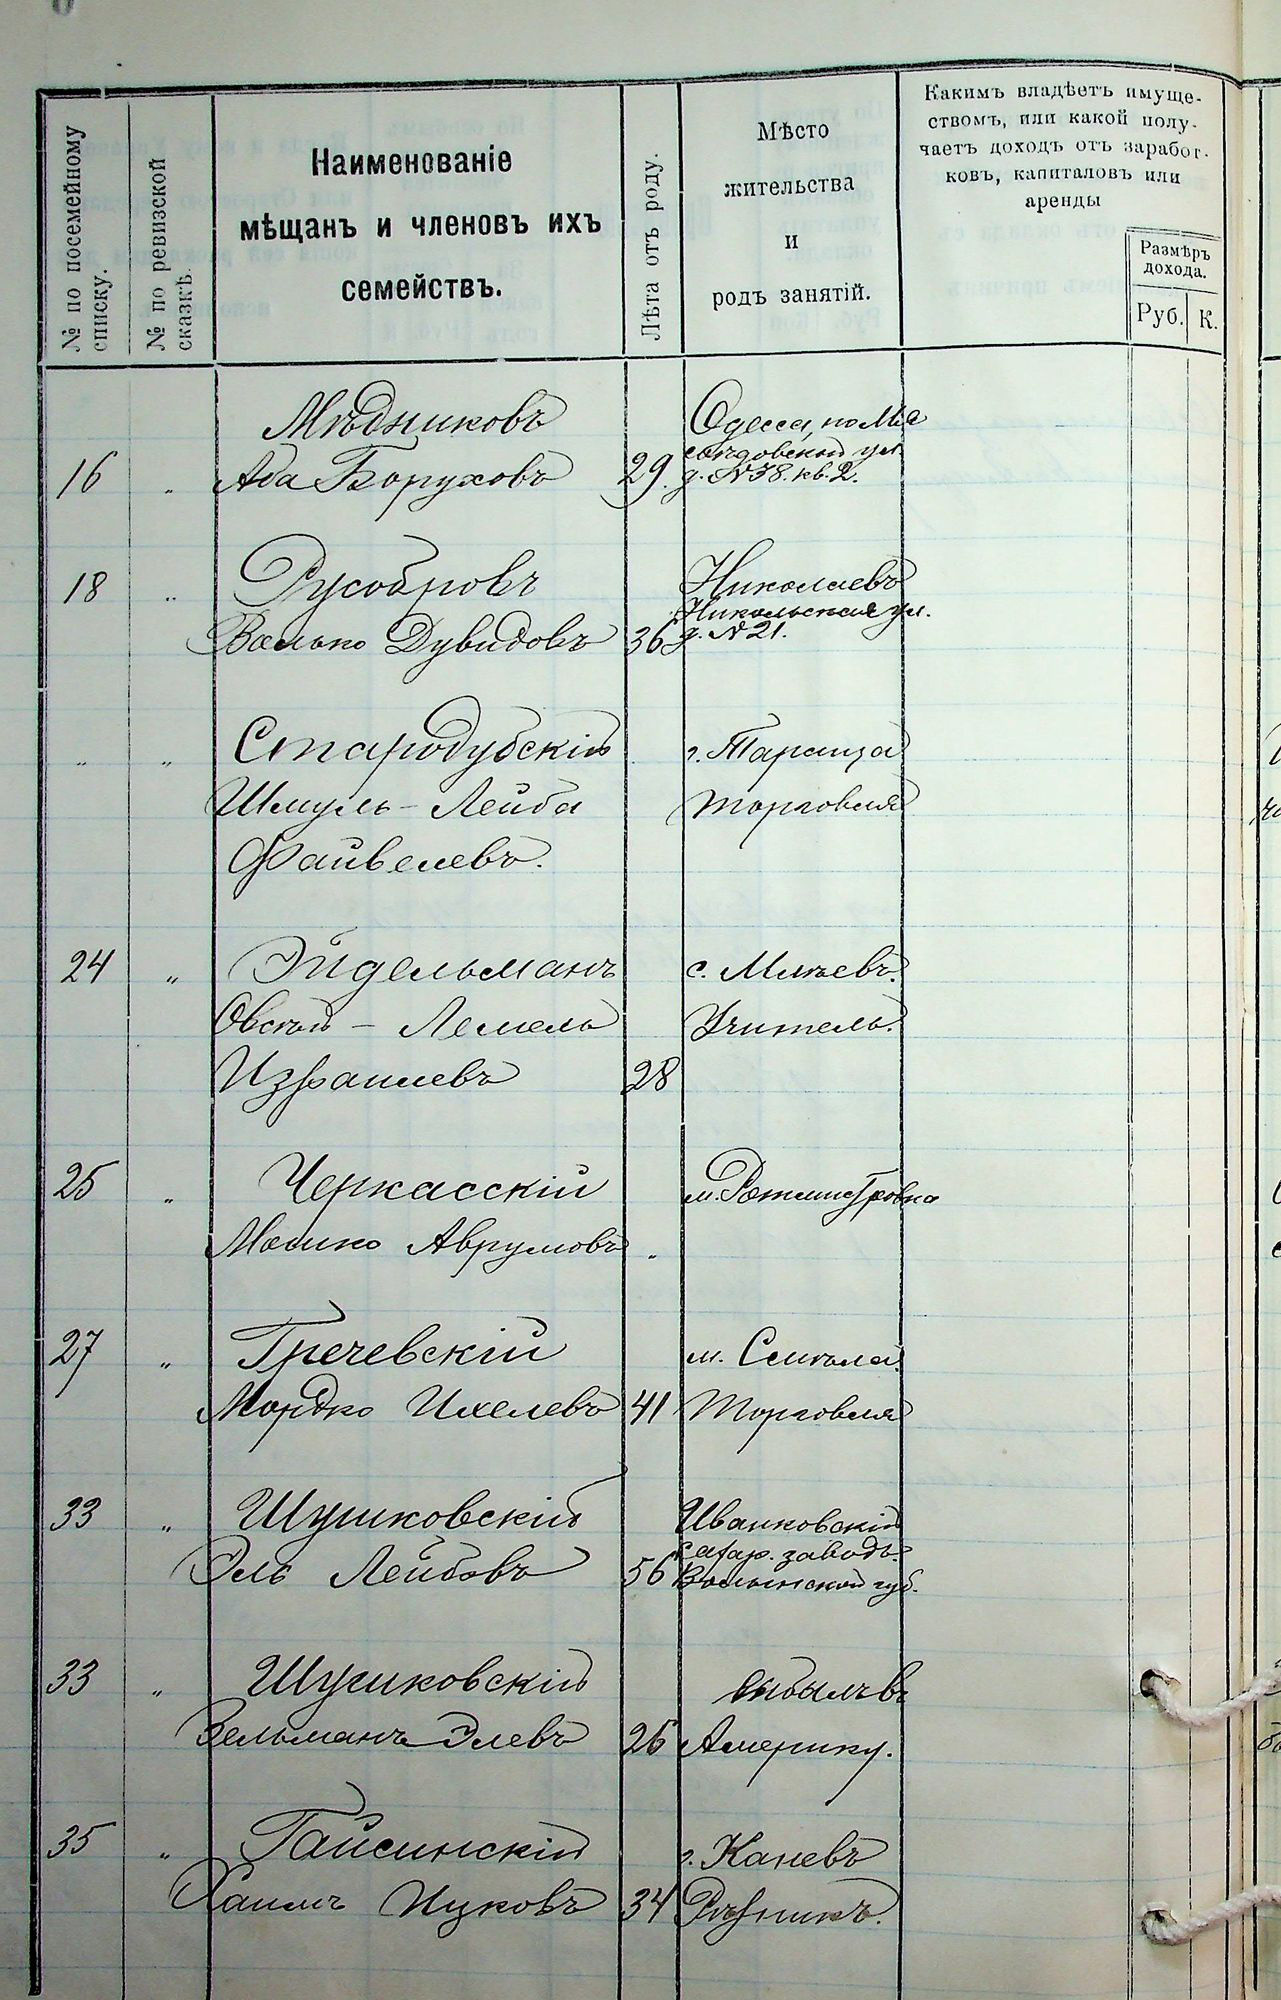 № по посемейному
списку.
№ по ревизской
сказкѣ.
Наименованіе
мѣщанъ и членовъ ихъ
семействъ.
Лѣта отъ роду.
Мѣсто
жительства
и
родъ занятій.
Какимъ владѣетъ имуще-
ствомъ, или какой полу-
чаетъ доходъ отъ заработ-
ковъ, капиталовъ или
аренды
Размѣръ
дохода.
Руб. К.
Мѣдниковъ
Одесса, по
ул.
16 " Аба Боруховъ 29 д. №38. кв. 2.
18 " Русобровъ Николаевъ
Никольская ул.
Волько Дувидовъ 36 д. №21.
" " Стародубскій г. Тараща
Шмуль-Лейба торговля
Файвелевъ.
24 " Эйдельманъ с. Млѣевъ.
Овсѣй - Лемель Учитель.
Израилевъ 28
25 " Черкасскій м. Ротмистровка
Мошко Аврумовъ "
27 " Гречевскій м. Смѣла.
Мордко Ихелевъ 41 Торговля
33 " Шушковскій Иванковскій
сахар. заводъ.
Эль Лейбовъ 56 Волынской губ.
33 " Шушковскій выбылъ въ
Зельманъ Элевъ 26 Америку.
35 " Гайсинскій г. Каневъ
Хаимъ Ицковъ 34 Рѣзникъ.